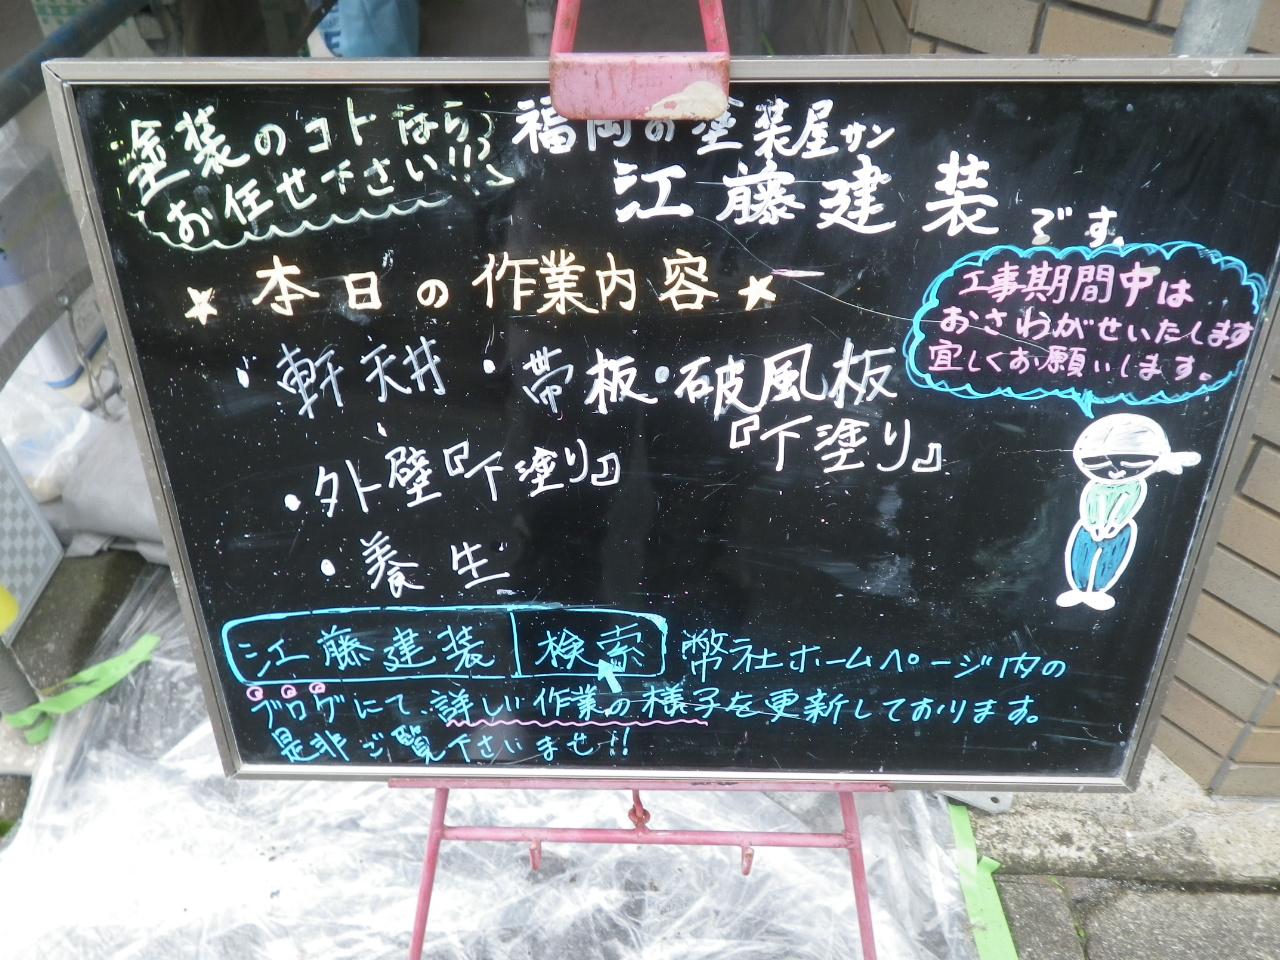 塗装のコトなら
お任せ下さい!!
福岡の塗装屋サン
江藤建装です。
★本日の作業内容★
・軒天井・帯板・破風板
『下塗り』
・外壁『下塗り』
・養生
工事期間中は
おさわがせいたします
宜しくお願いします。
江藤建装 検索 弊社ホームページ内の
ブログにて、詳しい作業の様子を更新しております。
是非ご覧下さいませ!!